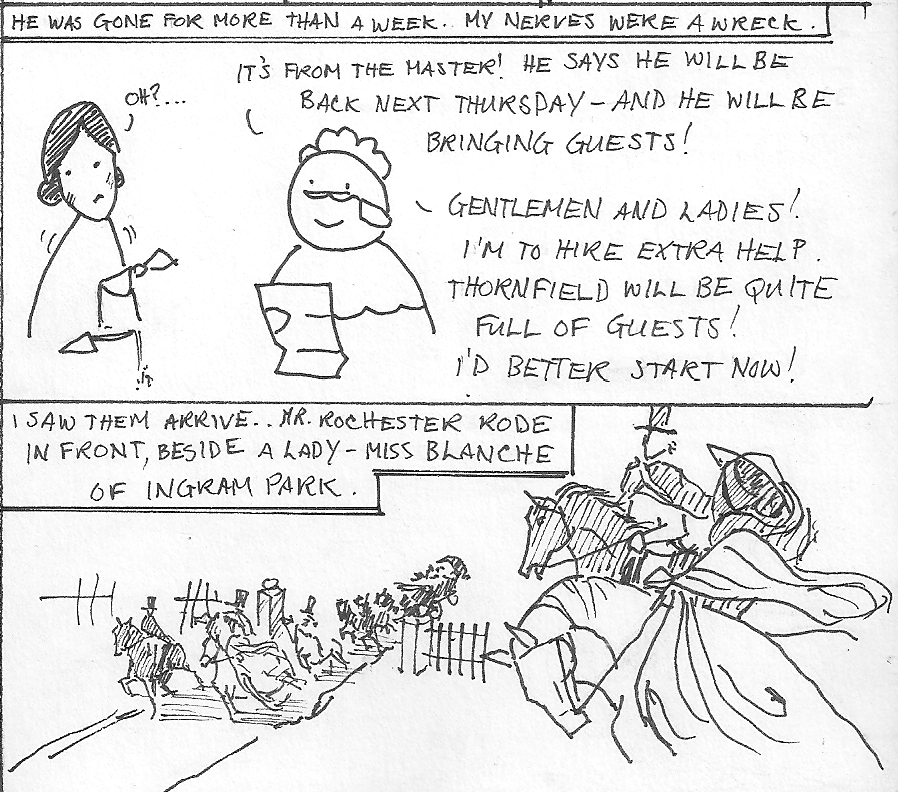 HE WAS GONE FOR MORE THAN A WEEK.. MY NERVES WERE A WRECK.
OH?...
IT'S FROM THE MASTER! HE SAYS HE WILL BE
BACK NEXT THURSDAY – AND HE WILL BE
BRINGING GUESTS!
GENTLEMEN AND LADIES!
I'M TO HIRE EXTRA HELP.
THORNFIELD WILL BE QUITE
FULL OF GUESTS!
I'D BETTER START NOW!
I SAW THEM ARRIVE.. MR. ROCHESTER RODE
IN FRONT, BESIDE A LADY – MISS BLANCHE
OF INGRAM PARK.